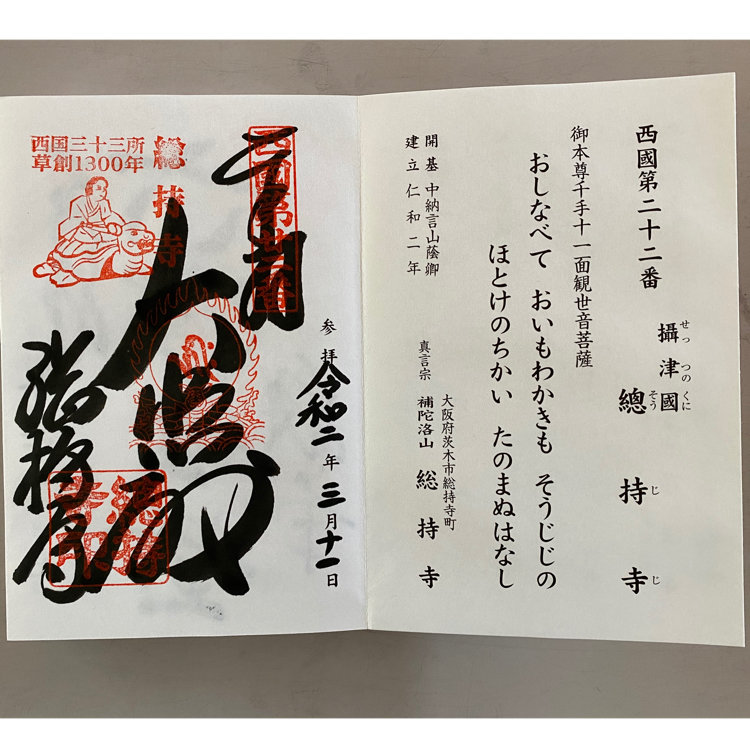 西國第二十二番
攝津國
せっつのくに
總持寺
そうじじ
御本尊千手十一面観世音菩薩
おしなべて おいもわかきも そうじじの
ほとけのちかい たのまぬはなし
開基 中納言山蔭卿
建立 仁和二年
大阪府茨木市総持寺町
真言宗 補陀洛山 総持寺
参拝 令和二年 三月十一日
西國第廿二番
大悲殿
総持寺
総持寺
西国三十三所
草創1300年
総持寺印